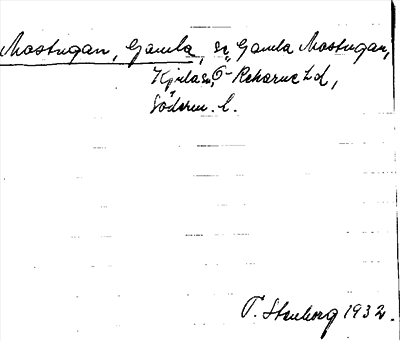 Mastugan, Gamla, se Gamla Mastugan,
Kjula sn, Ö-Rekarne hd,
Söderm. l.
T. Stenberg 1932.